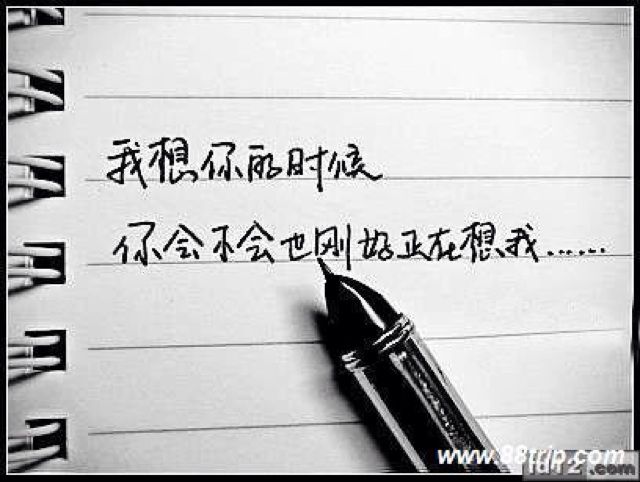 我想你的时候
你会不会也刚好正在想我......
www.88trip.com